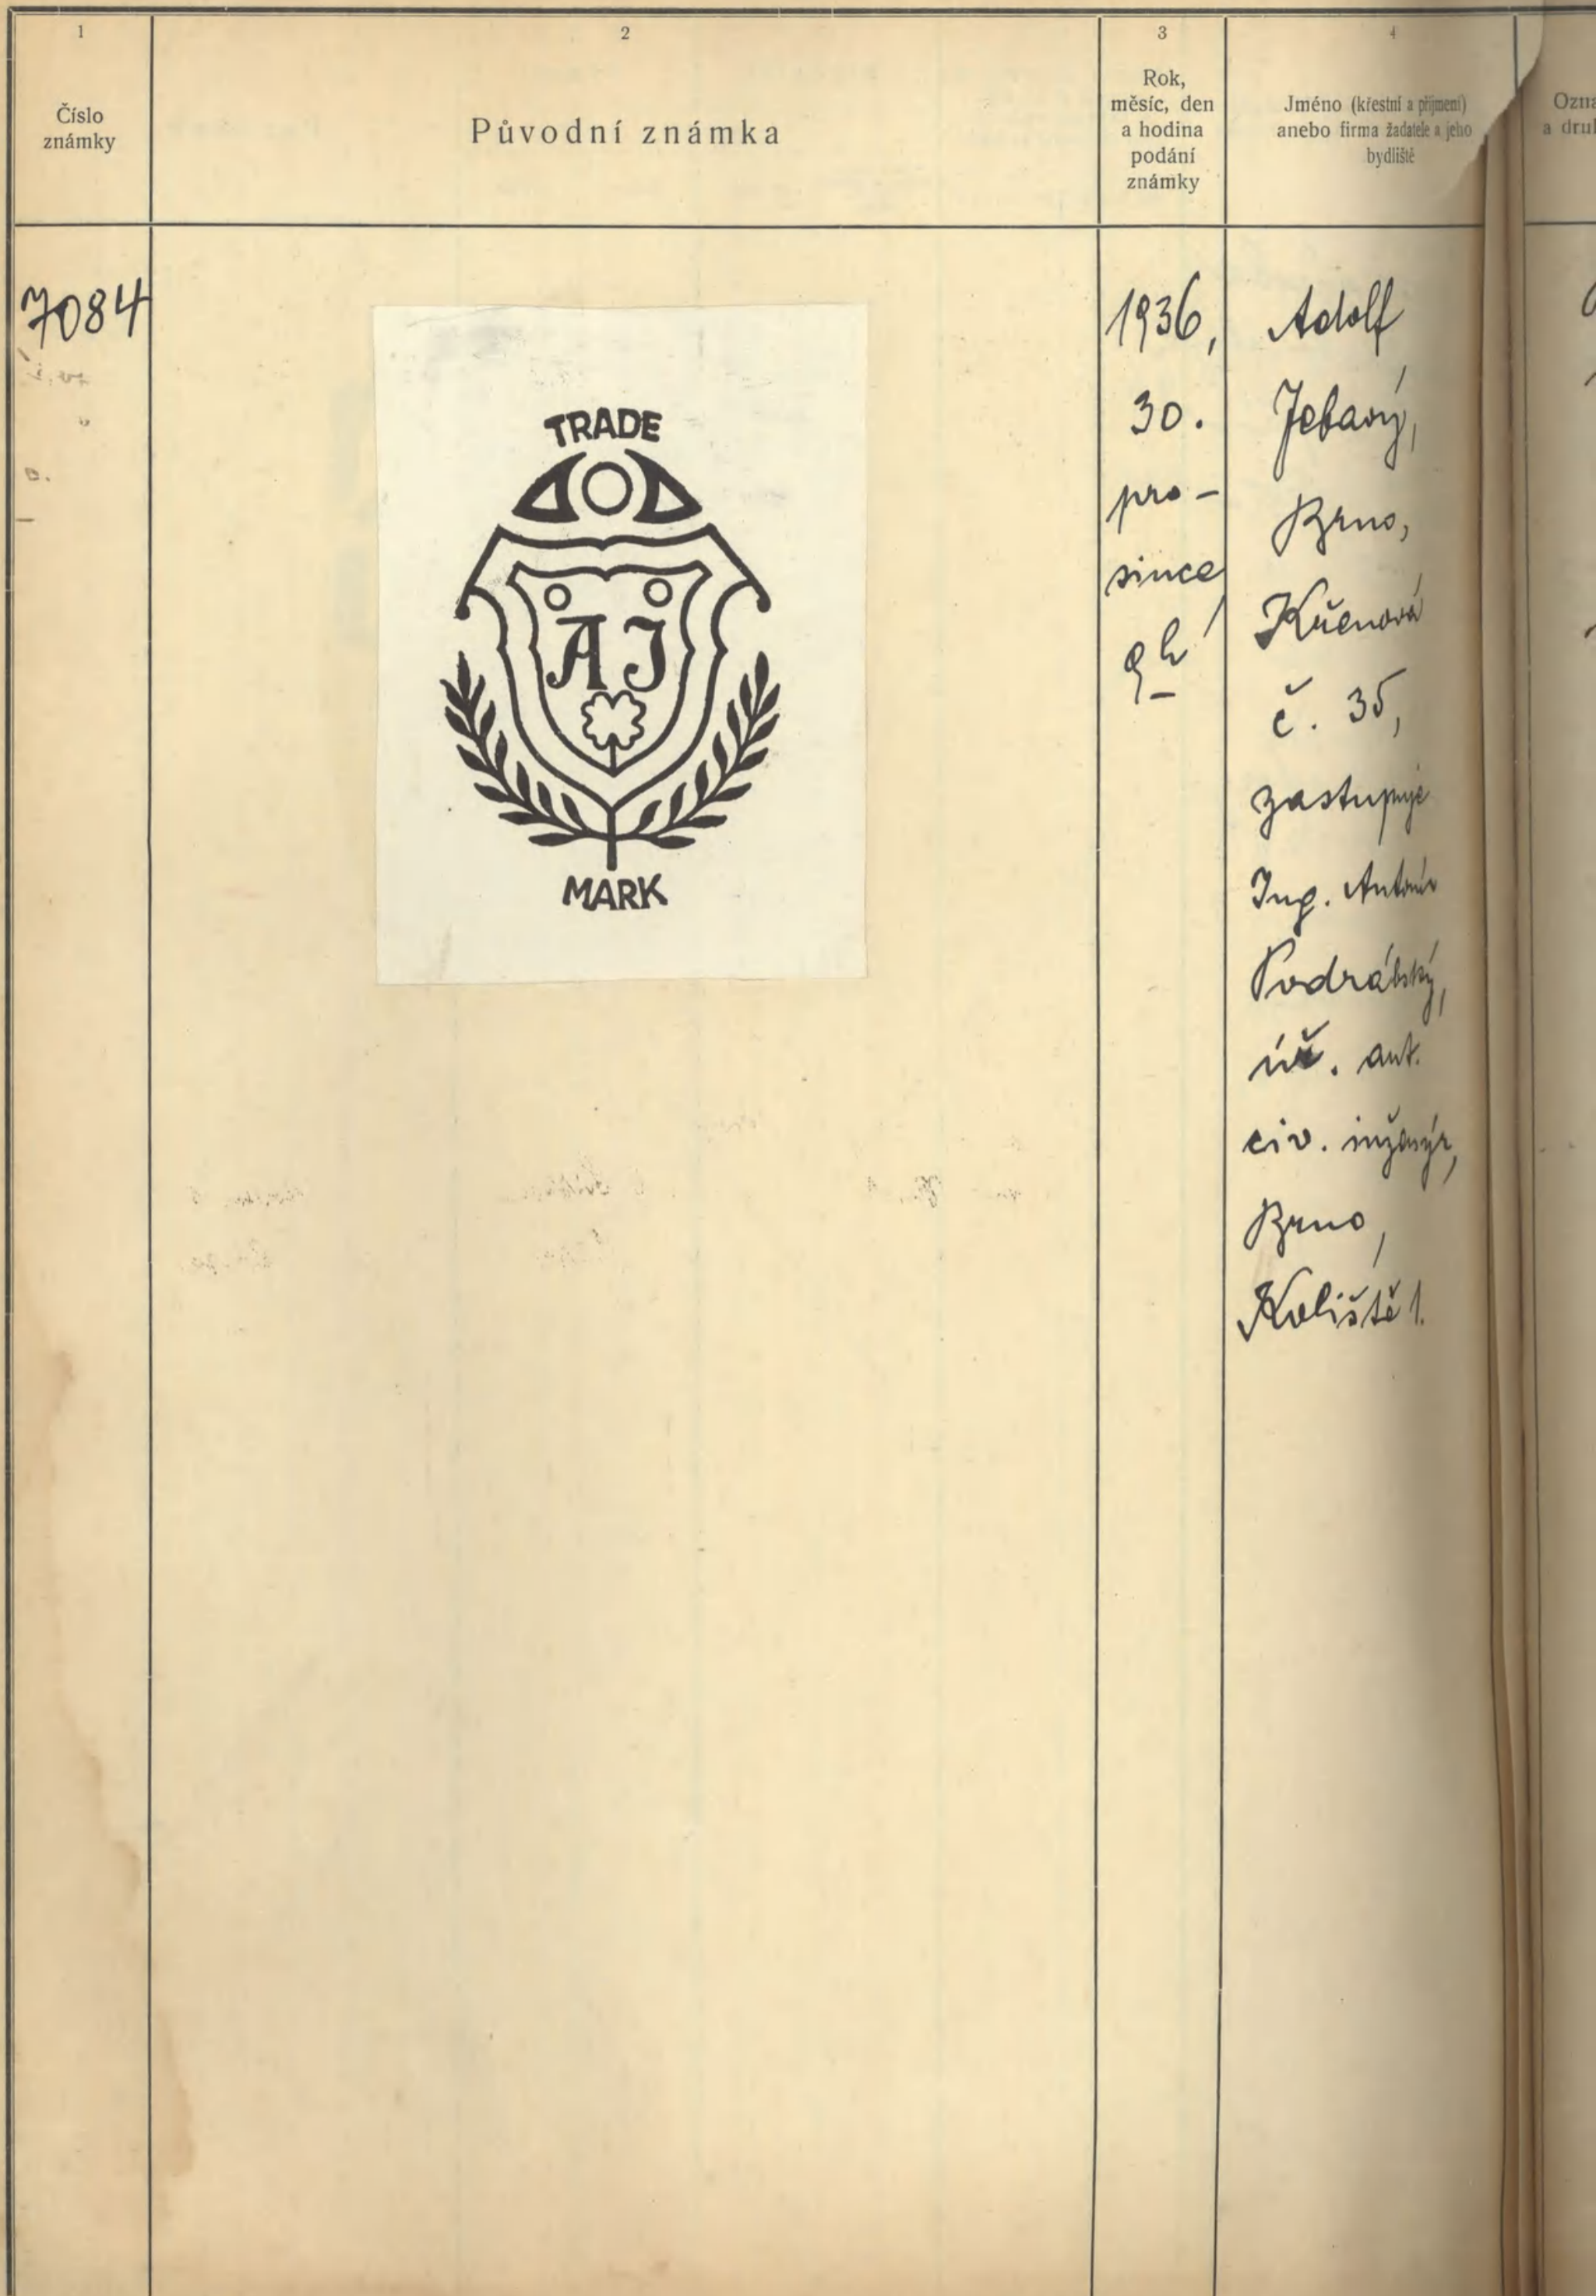 1
Číslo
známky
2
Původní známka
3
Rok,
měsíc, den
a hodina
podání
známky
4
Jméno (křestní a příjmení)
anebo firma žadatele a jeho
bydliště
Ozna
a dru
7084
TRADE
AJ
MARK
1936,
30.
pro-
since,
9h
Adolf
Jebavý,
Brno,
Křenová
č. 35,
zastupuje
Ing. Antonín
Podrábský,
úř. aut.
civ. inženýr,
Brno,
Koliště 1.